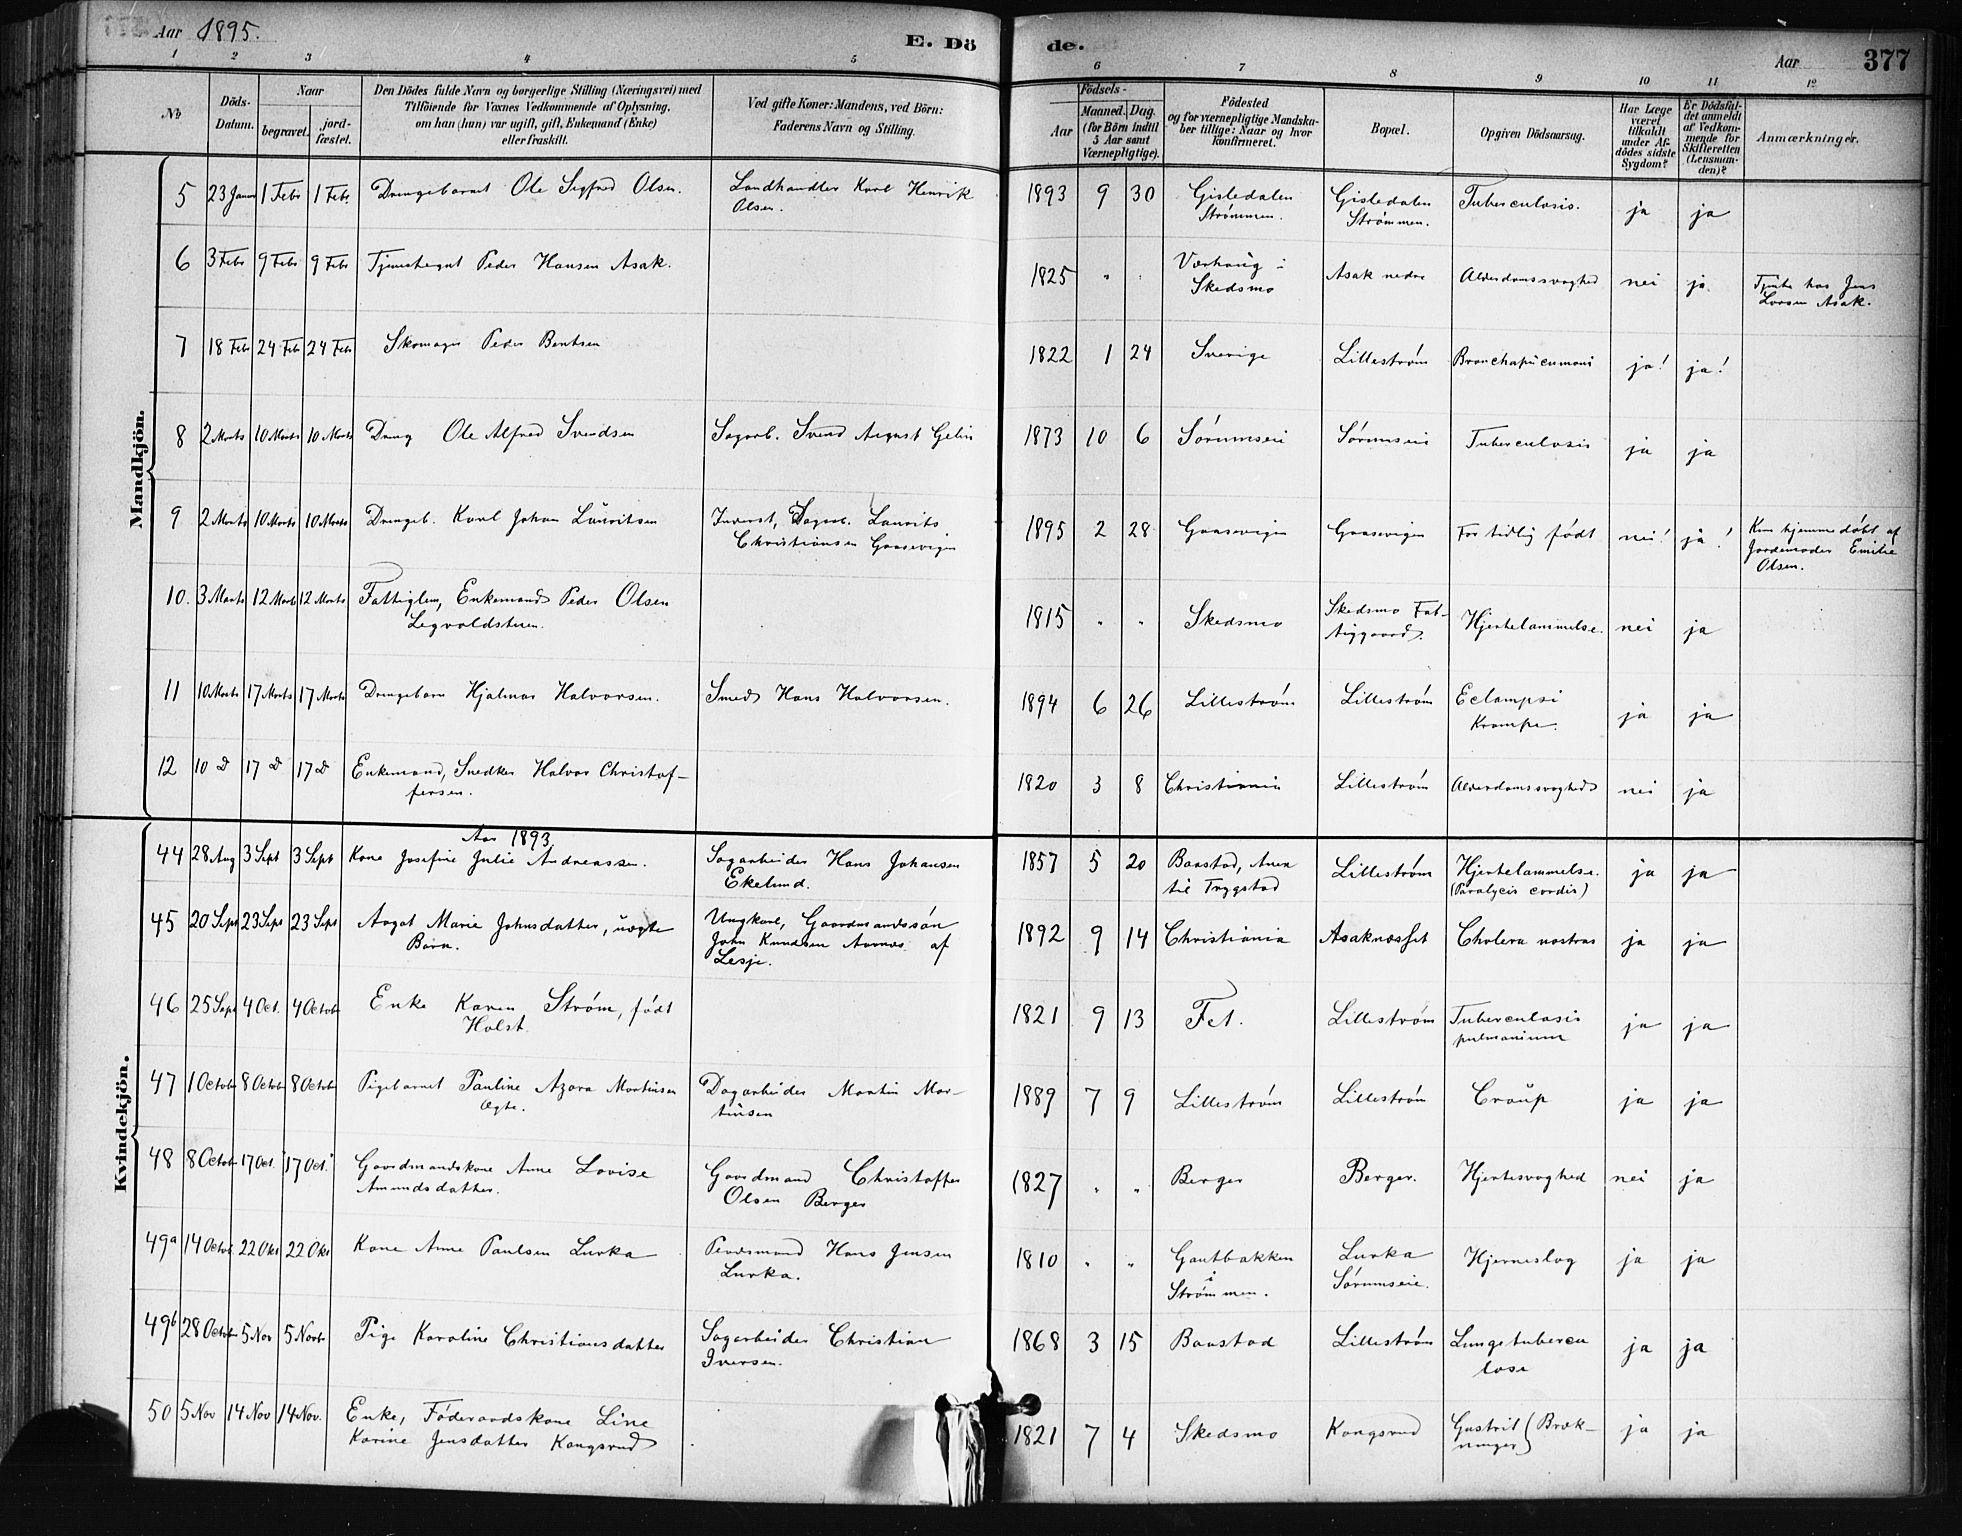 Aar 1895.
E. Dö
de.
Aar
377
1 2 3 4 5 6 7 8 9 10 11 12
No
Döds-Datum.
Naar
begravet.
jord-fæstet.
Den Dödes fulde Navn og borgerlige Stilling (Næringsvei) med
Tilföiende for Voxnes Vedkommende af Oplysning,
om han (hun) var ugift, gift, Enkemand (Enke)
eller fraskilt.
Ved gifte Koner: Mandens, ved Börn:
Faderens Navn og Stilling.
Födsels-
Aar
Maaned. Dag.
(for Börn indtil
5 Aar samt
Værnepligtige).
Födested
og for værnepligtige Mandska-
ber tillige: Naar og hvor
konfirmeret.
Bopæl.
Opgiven Dödsaarsag.
Har Læge
været
tilkaldt
under Af-
dödes sidste
Sygdom?
Er Dödsfal-
det anmeldt
af Vedkom-
mende for
Skifteretten
(Lensman-
den)?
Anmærkninger.
Mandkjön.
5 23 Janu 1 Febr 1 Febr Drengebarnet Ole Sigfred Olsen. Landhandler Karl Henrik
Olsen. 1893 9 30 Gisledalen
Strømmen. Gisledalen
Strømmen. Tuberculosis. ja ja
6 3 Febr 9 Febr 9 Febr Tjenestegut Peder Hansen Asak. 1825 " " Værhaug i
Skedsmo Asak nedre Alderdomssvaghed nei ja Tjente hos Jens
Larsen Asak.
7 18 Febr 24 Feb 24 Feb Skomager Peder Bentsen 1822 1 24 Sverige Lillestrøm Bronchapneumoni ja! ja!
8 2 Marts 10 Marts 10 Marts Dreng Ole Alfred Svendsen Sagarb. Svend August Gelin 1873 10 6 Sørumseie Sørumseie Tuberculosis ja ja
9 2 Marts 10 Marts 10 Marts Drengeb. Karl Johan Lauritsen Inderst, Dagarb. Laurits
Christiansen Gaasevigen 1895 2 28 Gaasevigen Gaasevigen For tidlig født nei! ja! Kun hjemmedøbt af
Jordemoder Emilie
Olsen.
10. 3 Marts 12 Marts 12 Marts Fattiglem, Enkemand Peder Olsen
Legvoldsteien. 1815 " " Skedsmo Skedsmo Fat-
tiggaard. Hjertelammelse. nei ja
11 10 Marts 17 Marts 17 Marts Drengebarn Hjalmar Halvorsen. Smed Hans Halvorsen. 1894 6 26 Lillestrøm Lillestrøm Eclampsi
Krampe. ja ja
12 10 d 17 d 17 d Enkemand, Snedker Halvor Christof-
fersen. 1820 3 8 Christiania Lillestrøm Alderdomssvaghed nei ja
Kvindekjön.
Aar 1893
44 28 Aug 3 Sept 3 Sept Kone Josefine Julie Andreassen. Sagarbeider Hans Johansen
Ekelund. 1857 5 20 Baastad, Anex
til Trygstad Lillestrøm Hjertelammelse.
(Paralycis cordis) ja ja
45 20 Sept 23 Sept 23 Sept Aagot Marie Johnsdatter, uægte
Barn. Ungkarl, Gaardmandssøn
John Knudsen Aarnes af
Lesje. 1892 9 14 Christiania Asaknosset Cholera nostras ja ja
46 25 Sept 4 Oct. 4 Octob Enke Karen Strøm, født
Holst. 1821 9 13 Fet. Lillestrøm Tuberculosis
pulmonium ja ja
47 1 Octob 8 Octob 8 Octob Pigebarnet Pauline Azora Martinsen
Ægte. Dagarbeider Martin Mar-
tinsen 1889 7 9 Lillestrøm Lillestrøm Croup ja ja
48 8 Octob 17 Oct. 17 Oct. Gaardmandskone Anne Lovise
Amundsdatter. Gaardmand Christoffer
Olsen Berger 1827 " " Berger Berger. Hjertesvaghed nei ja
49a 14 Octob. 22 Okt 22 Okt Kone Anne Paulsen Lurka Pladsmand Hans Jensen
Lurka. 1810 " " Gautbakken
i
Strømmen. Lurka
Sørumseie. Hjerneslag ja ja
49b 28 Octob 5 Nov 5 Novb Pige Karoline Christiansdatter Sagarbeider Christian
Iversen. 1868 3 15 Baastad Lillestrøm Lungetubercu
lose ja ja
50 5 Nov 14 Nov 14 Nov. Enke, Føderaadskone Line
Karine Jensdatter Kongsrud 1821 7 4 Skedsmo Kongsrud Gastrit (Bræk-
ninger) ja ja